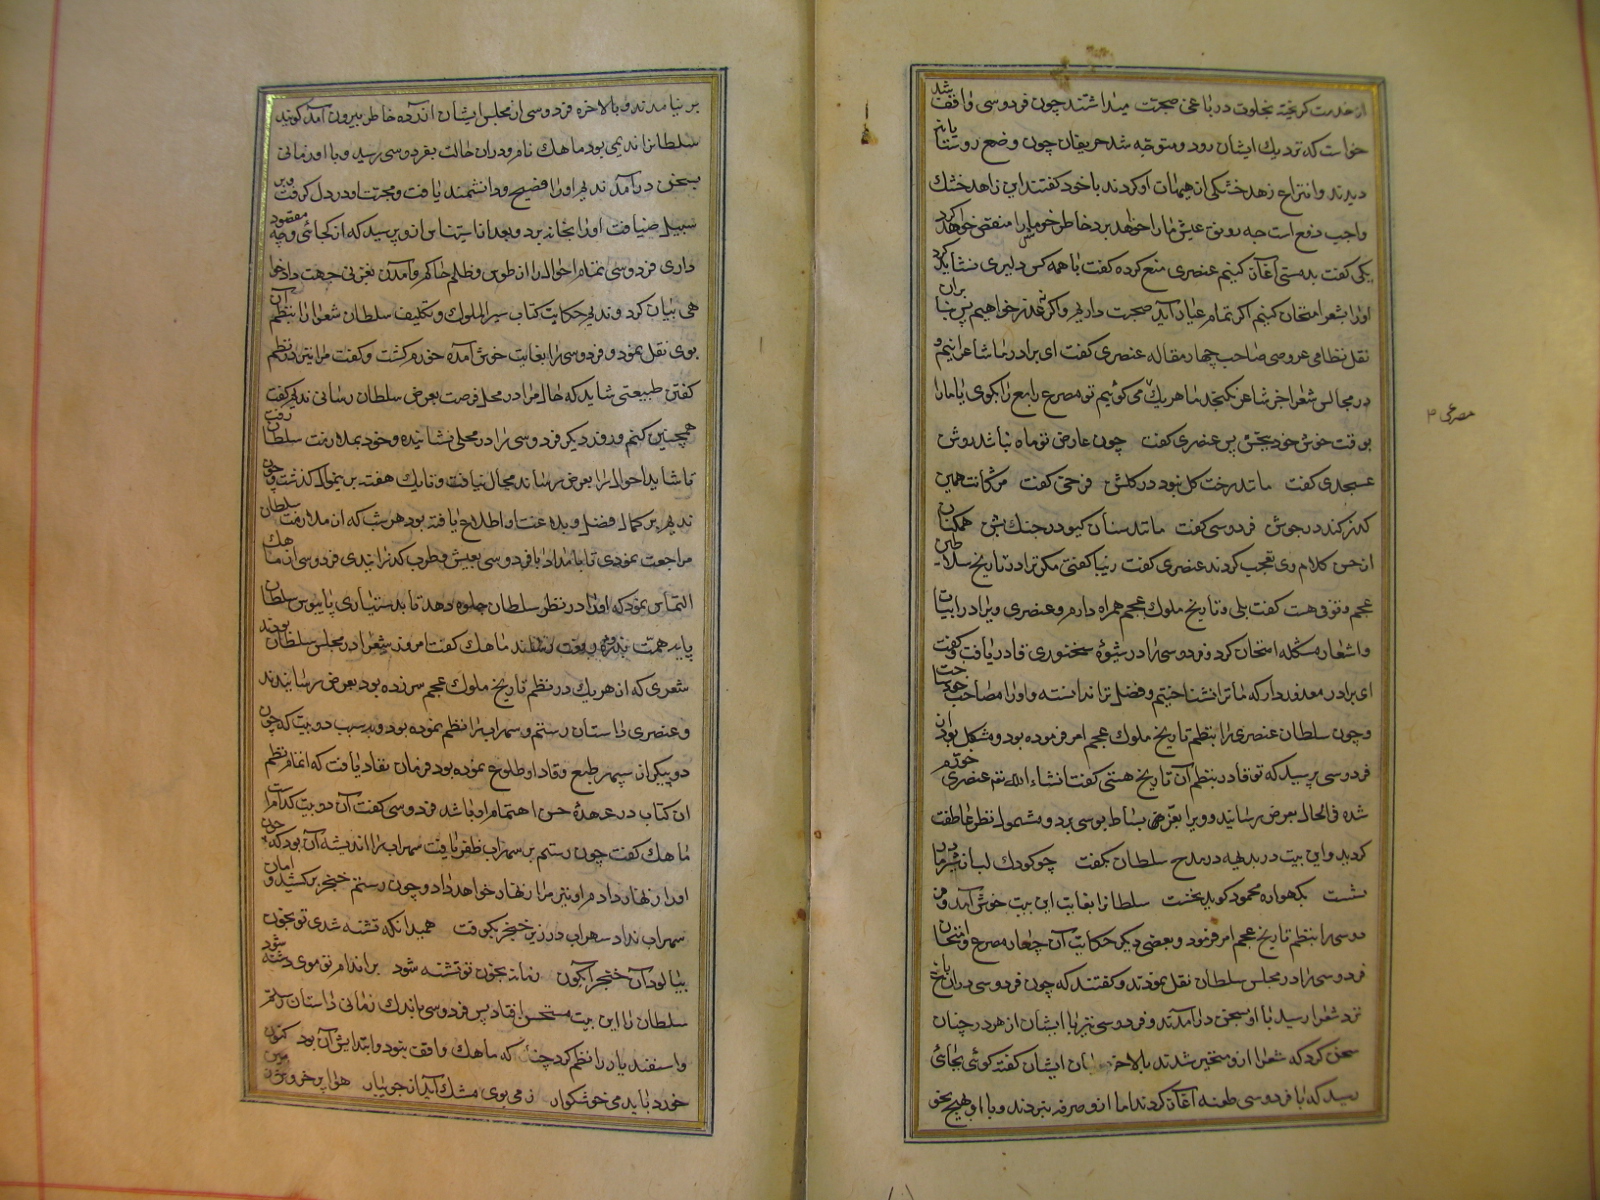 از خدمت کریخته بخلوت در باغی صحبت میداشتند چون فردوسی واقف شد
خواست که نزدیک ایشان رود و متوجه شد حریفان چون وضع روستا یانه
دیدند و انتزاع زهد خشکی از هیات او کردند با خود کفتند این زاهد خشک
واجب دفع است چه رونق عیش ما را خواهد برد خاطر خوش ما را منغص خواهد کرد
یکی کفت بدمستی آغاز کنیم عنصری منع کرده کفت با همه کس دلیری نشاید کرد
او را بشعر امتحان کنیم اکر تمام عیار آید صحبت داریم و اکر نه عذر خواهیم پس بنا بران
نقل نظامی عروضی صاحب چهار مقاله عنصری کفت ای برادر ما شاعرانیم و
در مجالس شعرا جز شاعر نکنجد ما هر یک می کوئیم تو مصرع رابع را بکوی یا ما را
مصرعی ۳
بوقت خوش خود ببخش پس عنصری کفت چون عارض تو ماه نباشد روشن
عسجدی کفت مانند رخت کل نبود در کلشن فرخی کفت مژکانت همین
کذر کند در جوشن فردوسی کفت مانند سنان کیو در جنک پشن همکنان
از حسن کلام وی تعجب کردند عنصری کفت زیبا کفتی مکر ترا در تاریخ سلاطین
عجم وقوفی هست کفت بلی و تاریخ ملوک عجم همراه دارم و عنصری ویرا در ابیات
و اشعار مشکله امتحان کرد فردوسی را در شیوهٔ سخنوری قادر یافت کفت
ای برادر معذور دار که ما ترا نشناختیم و فضل ترا ندانسته و او را مصاحب خود ساخت
و چون سلطان عنصری را بنظم تاریخ ملوک عجم امر فرموده بود و مشکل بود از
فردوسی پرسید که تو قادر بنظم آن تاریخ هستی کفت انشاء الله تع عنصری خورم
شده فی الحال بعرض رسانید و ویرا بعز بساط بوسی برد و مشمول نظر عاطفت
کردید و این بیت در بدیهه در مدح سلطان بکفت چو کودک لب از شیر مادر
بشست بکهواره محمود کوید نخست سلطانرا بغایت این بیت خوش آمد و فر
دوسی را بنظم تاریخ عجم امر فرمود و بعضی دیکر حکایت آن چهار مصرع و امتحان
فردوسی را در مجلس سلطان نقل نمودند و کفتند که چون فردوسی در ان باغ
نزد شعرا رسید با او بسخن درآمدند و فردوسی نیز با ایشان از هر در چنان
سخن کرد که شعرا ازو متحیر شدند بالاخره ایشان کفتکوئی بجائی
رسید که با فردوسی طعنه آغاز کردند اما ازو صرفه نبردند و با او هیچ بخو
بر نیامدند و بالاخره فردوسی از مجلس ایشان آزرده خاطر بیرون آمد کویند
سلطانرا ندیمی بود ماهک نام و در ان حالت بفردوسی رسید و با او زمانی
بسخن درآمد ندیم او را فصیح و دانشمند یافت و محبت او در دل کرفت و بر
سبیل ضیافت او را بخانه برد و بعد از استیناس ازو پرسید که از کجائی و چه مقصود
داری فردوسی تمام احوال را از طوس و ظلم حاکم و آمدن بغزنی جهت دادخوا
هی بیان کرد و ندیم حکایت کتاب سیر الملوک و تکلیف سلطان شعرا را بنظم آن
بوی نقل نمود و فردوسی را بغایت خوش آمده خورم کشت و کفت مرا نیز در نظم
کفتن طبیعتی شاید که حال مرا در محل فرصت بعرض سلطان رسانی ندیم کفت
همچنین کنم و روز دیکر فردوسی را در محلی نشانیده و خود بملازمت سلطان رفت
تا شاید احوال را بعرض رساند مجال نیافت و تا یک هفته برینمنوال کذشت و چون
ندیم بر کمال فضل و بلاغت او اطلاع یافته بود هر شب که از ملازمت سلطان
مراجعت نمودی تا بامداد با فردوسی بعیش و طرب کذرانیدی فردوسی از ماهک
التماس نمود که او را در نظر سلطان جلوه دهد تا بدستیاری پابوس سلطان
پایه همت ماهک کفت امروز شعرا در مجلس سلطان بودند
شعری که از هر یک در نظم تاریخ ملوک عجم سر زده بود بعرض رسانیدند
و عنصری داستان رستم و سهراب را نظم نموده بود و بدسبب دو بیت که چون
دو پیکر از سپهر طبع وقاد او طلوع نموده بود فرمان نفاد یافت که اتمام نظم
ان کتاب در عهدهٔ حسن اهتمام او باشد فردوسی کفت آن دو بیت کدامست
ماهک کفت چون رستم بر سهراب ظفر یافت سهراب را اندیشه آن بود که چون
او را زنهار دادم او نیز مرا زنهار خواهد داد و چون رستم خنجر برکشید و امان
سهراب نداد سهراب در زیر خنجر بکوفت همیدانکه تشنه شدی تو بخون
بیالود آن خنجر آبکون زمانه بخون تو تشنه شود بر اندام تو موی دشنه شود
سلطان را این بیت مستحسن افتاد پس فردوسی باندک زمانی داستان رستم
و اسفندیار را نظم کرد چنانکه ماهک واقف نبود و ابتدایش آن بود کنون
خورد باید می خوشکوار ز می بوی مشک آید از جویبار هوا پر خروش